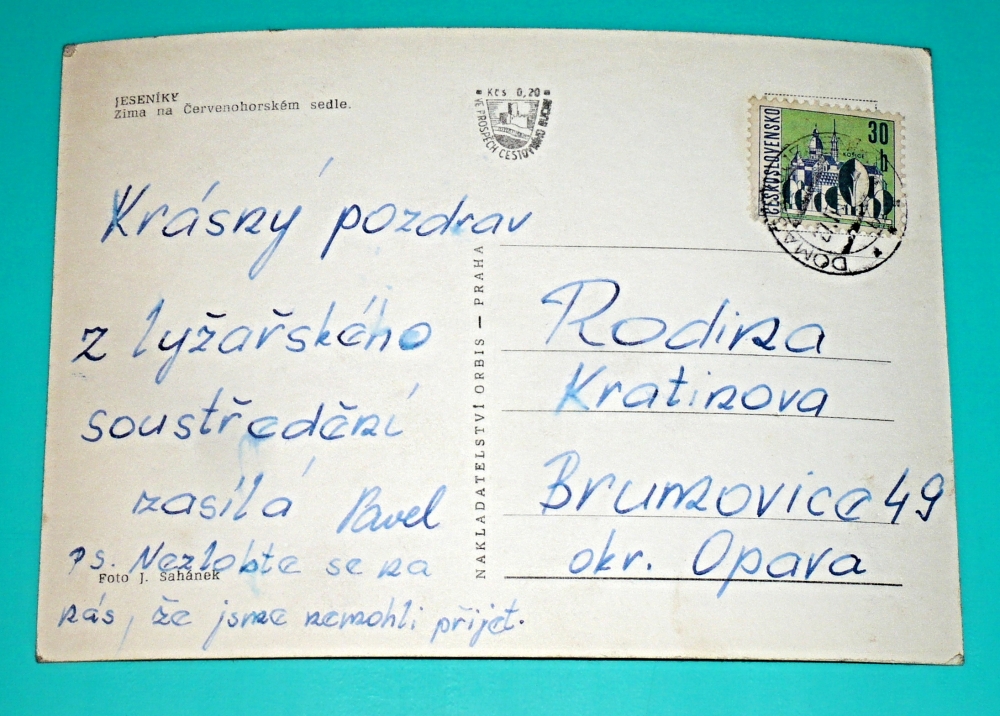 JESENÍKY
Zima na Červenohorském sedle.
Kčs 0,20
VE PROSPĚCH CESTOVNÍHO RUCHU
ČESKOSLOVENSKO
30 h
KOŠICE
DOMA
Krásný pozdrav
z lyžařského
soustředění
zasílá Pavel
PS. Nezlobte se na
nás, že jsme nemohli přijet.
Foto J. Sahánek
NAKLADATELSTVÍ ORBIS — PRAHA
Rodina
Kratinova
Brumovice 49
okr. Opava